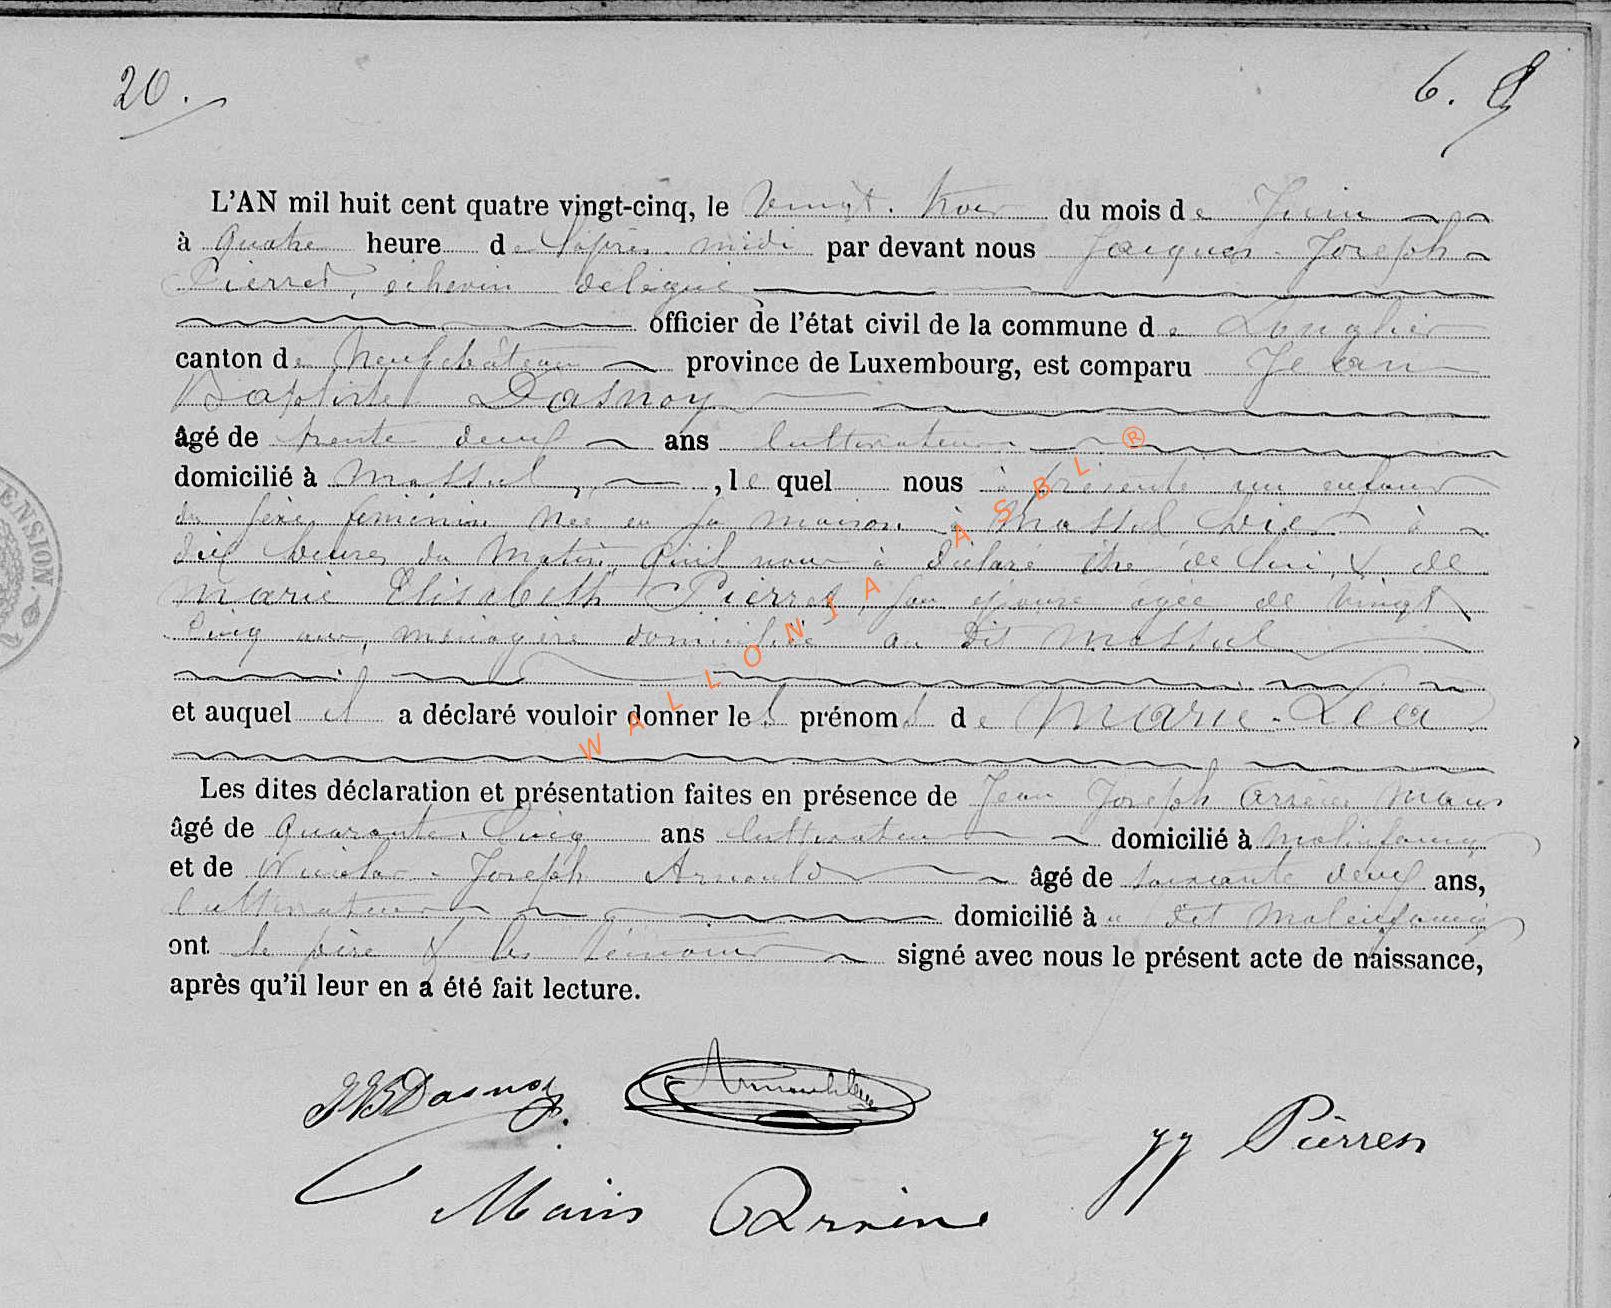 20.
6.
L'AN mil huit cent quatre vingt-cinq, le vingt-trois du mois de Juin
à quatre heure de l'après-midi par devant nous Jacques-Joseph
Pierret, échevin délégué
officier de l'état civil de la commune de Longlier
canton de Neufchâteau province de Luxembourg, est comparu Jean
Baptiste Dasnoy
âgé de trente deux ans Cultivateur
domicilié à Massul, lequel nous à présenté un enfant
du sexe féminin née en sa maison à Massul hier à
dix heures du matin, qu'il nous à déclaré être de lui & de
Marie Elisabeth Pierret, son épouse âgée de vingt
cinq ans, ménagère domiciliée au dit Massul
et auquel il a déclaré vouloir donner les prénoms de Marie-Léa
Les dites déclaration et présentation faites en présence de Jean Joseph Mans
âgé de quarante-cinq ans cultivateur domicilié à Molinfaing
et de Nicolas-Joseph Arnould âgé de soixante deux ans,
cultivateur domicilié à u dit Molinfaing
ont le père & les témoins signé avec nous le présent acte de naissance,
après qu'il leur en a été fait lecture.
JB Dasnoy
JJ Pierret
ENSION.
WALLONIA ASBL ®